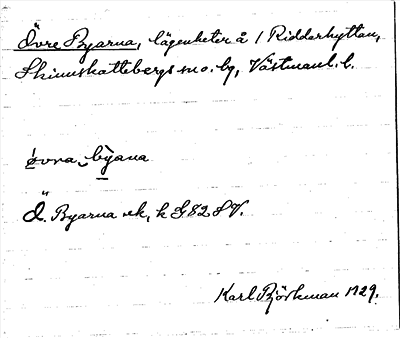 Övre Byarna, lägenheter å 1 Ridderhyttan,
Skinnskattebergs sn o. bg, Västmanl. l.
øvra byana
Ö. Byarna ek, k G82 SV.
Karl Björkman 1929.